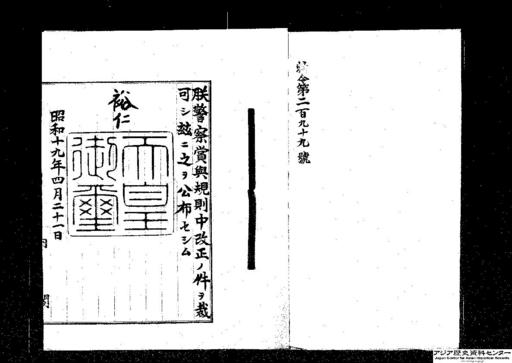 勅令第二百九十九號
朕警察賞與規則中改正ノ件ヲ裁
可シ茲ニ之ヲ公布セシム
裕仁
天皇
御璽
昭和十九年四月二十一日
内閣
アジア歴史資料センター
Japan Center for Asian Historical Records